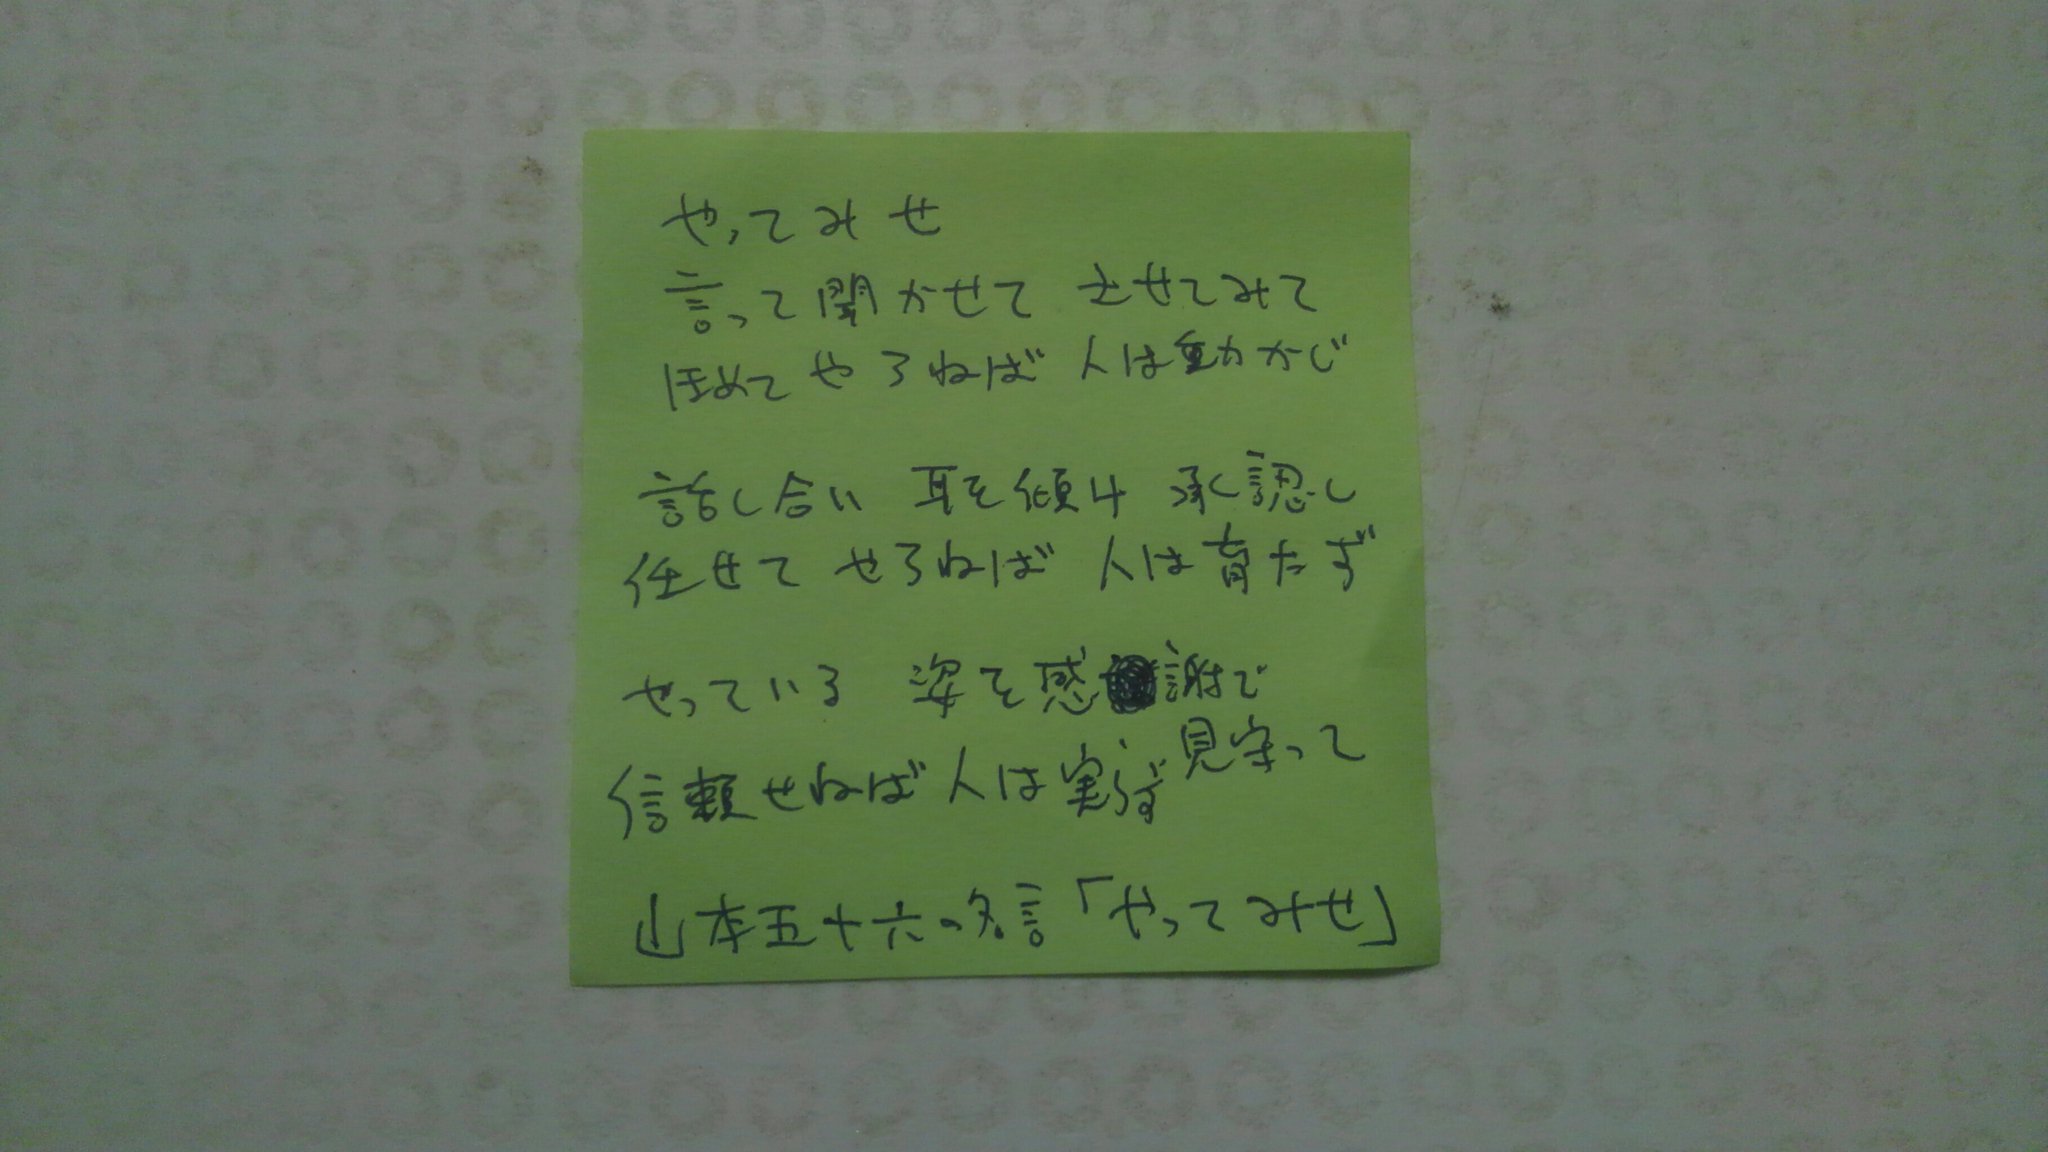 やってみせ
言って聞かせて させてみて
ほめてやらねば 人は動かじ
話し合い 耳を傾け 承認し
任せてやらねば 人は育たず
やっている 姿を感謝で
見守って
信頼せねば人は実らず
山本五十六の名言「やってみせ」